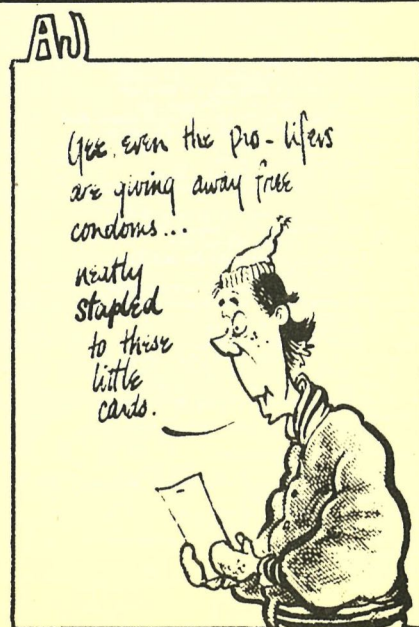 AW
Gee, even the pro-lifers
are giving away free
condoms...
neatly
stapled
to these
little
cards.